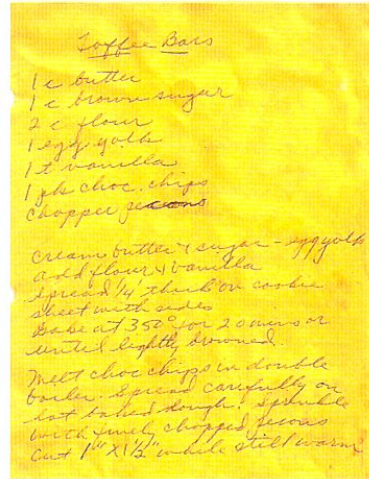 Toffee Bars
1 c butter
1 c brown sugar
2 c flour
1 egg yolk
1 t vanilla
1 pk choc. chips
chopper pecans
cream butter & sugar - egg yolk
add flour & vanilla
Spread 1/4" thick on cookie
sheet with sides
Bake at 350° for 20 mins or
until lightly browned.
Melt choc chips in double
boiler. Spread carefully on
hot baked dough. Sprinkle
with finely chopped pecans
Cut 1" X 1 1/2" while still warm